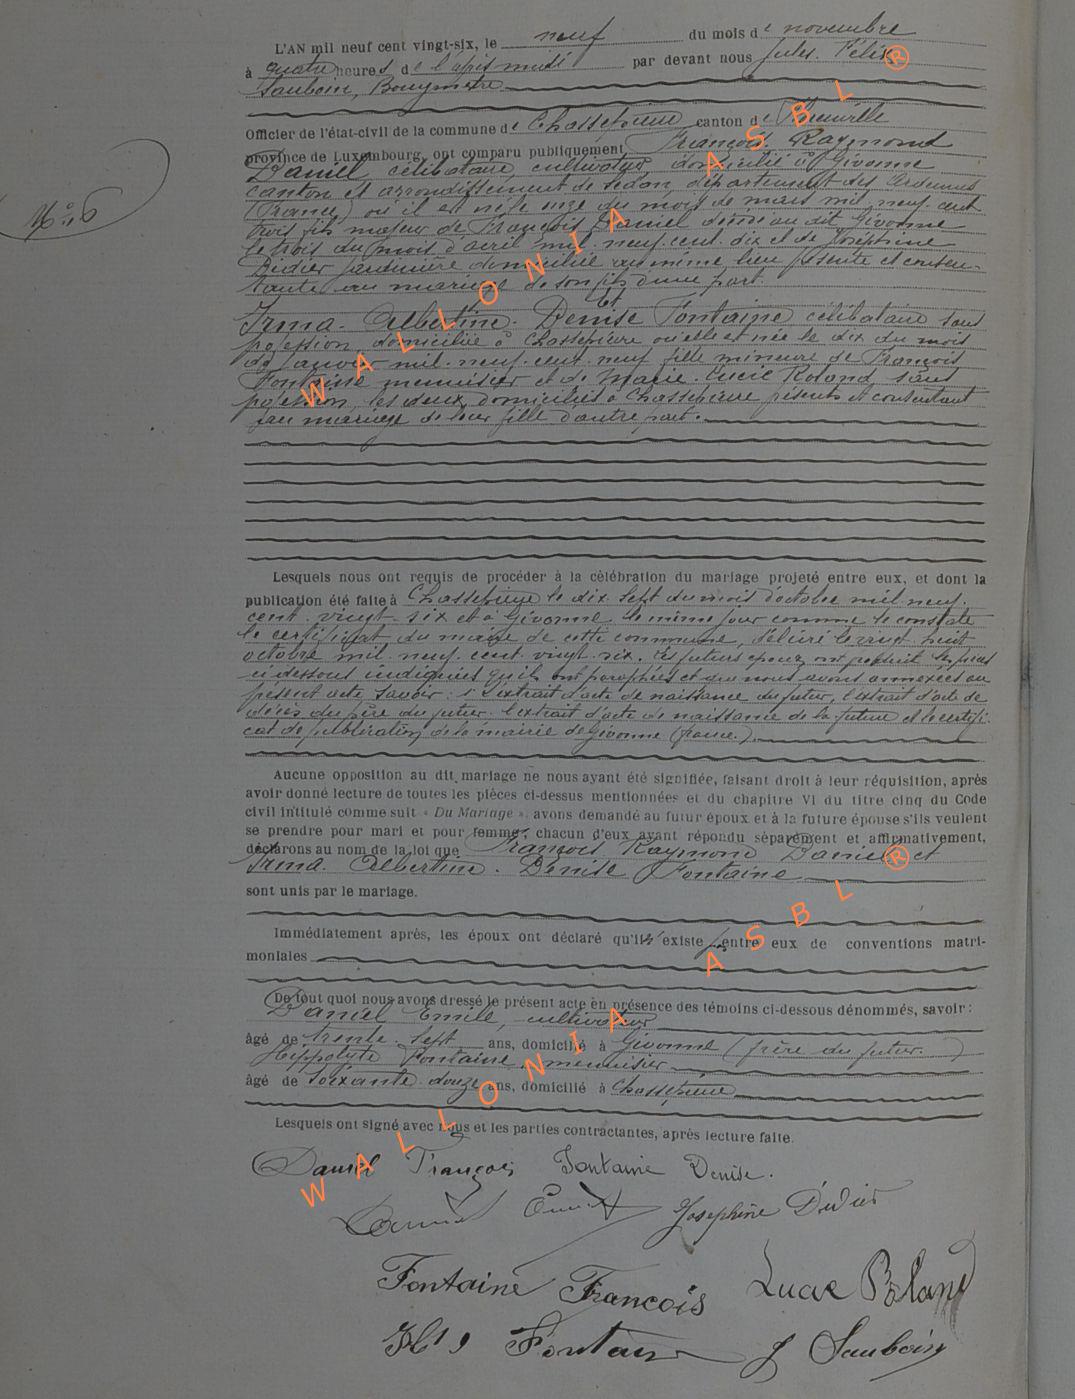 L'AN mil neuf cent vingt-six, le neuf du mois de novembre
à quatre heures de l'après midi par devant nous Jules Félix
Sauboin, Bourgmestre
Officier de l'état-civil de la commune de Chassepierre canton de
province de Luxembourg, ont comparu publiquement François Raymond
Daniel célibataire, cultivateur, domicilié à Givonne
canton et arrondissement de Sedan, département des Ardennes
(France) où il est né le onze du mois de mars mil neuf cent
trois fils majeur de François Daniel décédé au dit Givonne
le trois du mois d'avril mil neuf cent dix et de Joséphine
Didier jardinière domiciliée au même lieu présente et consen-
tante au mariage de son fils d'une part.
Et
Irma Albertine Denise Fontaine célibataire sans
profession, domiciliée à Chassepierre où elle est née le dix du mois
de janvier mil neuf cent neuf fille mineure de François
Fontaine menuisier et de Marie Lucie Roland sans
profession, les deux domiciliés à Chassepierre présents et consentant
au mariage de leur fille d'autre part.
16 6
Lesquels nous ont requis de procéder à la célébration du mariage projeté entre eux, et dont la
publication été faite à Chassepierre le dix sept du mois d'octobre mil neuf
cent vingt six et à Givonne le même jour comme le constate
le certificat du maire de cette commune, délivré le vingt huit
octobre mil neuf cent vingt six. Les futurs époux ont produit les pièces
ci dessous indiquées qu'ils ont paraphées et que nous avons annexées au
présent acte, savoir: l'extrait d'acte de naissance du futur, l'extrait d'acte de
décès du père du futur. l'extrait d'acte de naissance de la future et le certifi-
cat de publication de la mairie de Givonne (France.)
Aucune opposition au dit mariage ne nous ayant été signifiée, faisant droit à leur réquisition, après
avoir donné lecture de toutes les pièces ci-dessus mentionnées et du chapitre VI du titre cinq du Code
civil intitulé comme suit « Du Mariage », avons demandé au futur époux et à la future épouse s'ils veulent
se prendre pour mari et pour femme; chacun d'eux ayant répondu séparément et affirmativement,
déclarons au nom de la loi que François Raymond Daniel et
Irma Albertine Denise Fontaine
sont unis par le mariage.
Immédiatement après, les époux ont déclaré qu'il n'existe pas entre eux de conventions matri-
moniales
De tout quoi nous avons dressé le présent acte en présence des témoins ci-dessous dénommés, savoir :
Daniel Emile, cultivateur
âgé de trente sept ans, domicilié à Givonne (frère du futur.)
Hippolyte Fontaine, menuisier
âgé de soixante douze ans, domicilié à Chassepierre
Lesquels ont signé avec nous et les parties contractantes, après lecture faite.
Daniel François Fontaine Denise.
Daniel Joséphine Didier
Fontaine François Lucie Roland
Fontaine J Sauboin
WALLONIA ASBL ®
WALLONIA ASBL ®